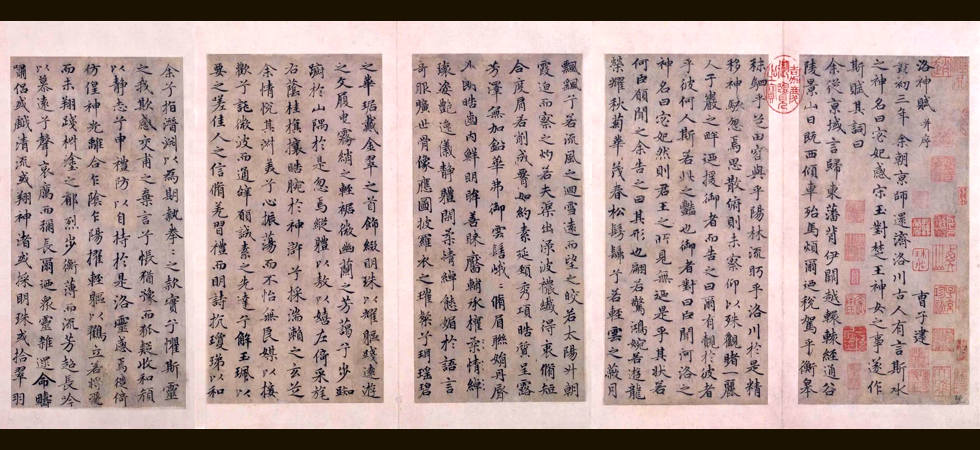 洛神賦 并序
曹子建
黃初三年余朝京師還濟洛川古人有言斯水
之神名曰宓妃感宋玉對楚王神女之事遂作
斯賦其詞曰
余從京域言歸東藩背伊闕越轘轅經通谷
陵景山日既西傾車殆馬煩爾迺稅駕乎蘅皋
秣駟乎芝田容與乎陽林流眄乎洛川於是精
移神駭忽焉思散俯則未察仰以殊觀睹一麗
人于巖之畔迺援御者而告之曰爾有覿於彼者
乎彼何人斯若此之豔也御者對曰臣聞河洛之
神名曰宓妃然則君王之所見無迺是乎其狀若
何臣願聞之余告之曰其形也翩若驚鴻婉若遊龍
榮耀秋菊華茂春松髣髴兮若輕雲之蔽月
飄飄兮若流風之迴雪遠而望之皎若太陽升朝
霞迫而察之灼若夫蕖出淥波穠纖得衷脩短
合度肩若削成腰如約素延頸秀項皓質呈露
芳澤無加鉛華弗御雲髻峨峨脩眉聯娟丹脣
外朗皓齒內鮮明眸善睞靨輔承權柔情綽
瓌姿豔逸儀靜體閑柔情綽態媚於語言
奇服曠世骨像應圖披羅衣之璀粲兮珥瑤碧
之華琚戴金翠之首飾綴明珠以耀軀踐遠遊
之文履曳霧綃之輕裾微幽蘭之芳藹兮步踟
躕於山隅於是忽焉縱體以遨以嬉左倚采旄
右蔭桂旗攘皓腕於神滸兮採湍瀨之玄芝
余情悅其淑美兮心振蕩而不怡無良媒以接
歡兮託微波而通辭願誠素之先達兮解玉珮以
要之嗟佳人之信脩羌習禮而明詩抗瓊珶以和
余兮指潛淵以為期執拳〻之款實兮懼斯靈
之我欺感交甫之棄言兮悵猶豫而狐疑收和顏
以靜志兮申禮防以自持於是洛靈感焉徙倚
彷徨神光離合乍陰乍陽擢輕軀以鶴立若將飛
而未翔踐椒塗之郁烈步蘅薄而流芳超長吟
以慕遠兮聲哀厲而彌長爾迺眾靈雜遝命疇
嘯侶或戲清流或翔神渚或採明珠或拾翠羽